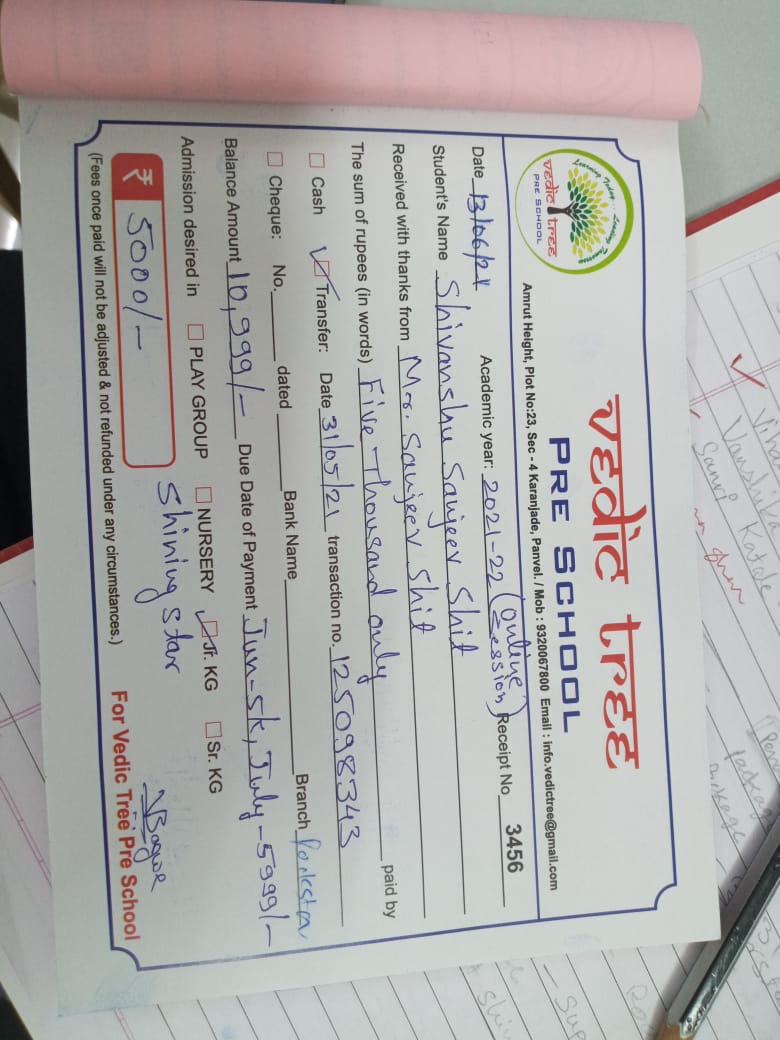 Learning Today Leading Tomorrow
vedic tree
PRE SCHOOL
vedic tree
PRE SCHOOL
Amrut Height, Plot No:23, Sec - 4 Karanjade, Panvel. / Mob : 9320067800 Email : info.vedictree@gmail.com
Date 13/06/21 Academic year: 2021-22 (Online Session) Receipt No 3456
Student's Name Shivanshu Sanjeev Shit
Received with thanks from Mr. Sanjeev Shit paid by
The sum of rupees (in words) Five Thousand only
☐ Cash ☑ Transfer: Date 31/05/21 transaction no. 125098343
☐ Cheque: No. dated Bank Name Branch Rockstar
Balance Amount 10,999/- Due Date of Payment Jun-5k, July-5999/-
Admission desired in ☐ PLAY GROUP ☐ NURSERY ☑ Jr. KG ☐ Sr. KG
₹ 5000/- Shining Star
(Fees once paid will not be adjusted & not refunded under any circumstances.) For Vedic Tree Pre School
Vanshika
Sanvi Katale
package